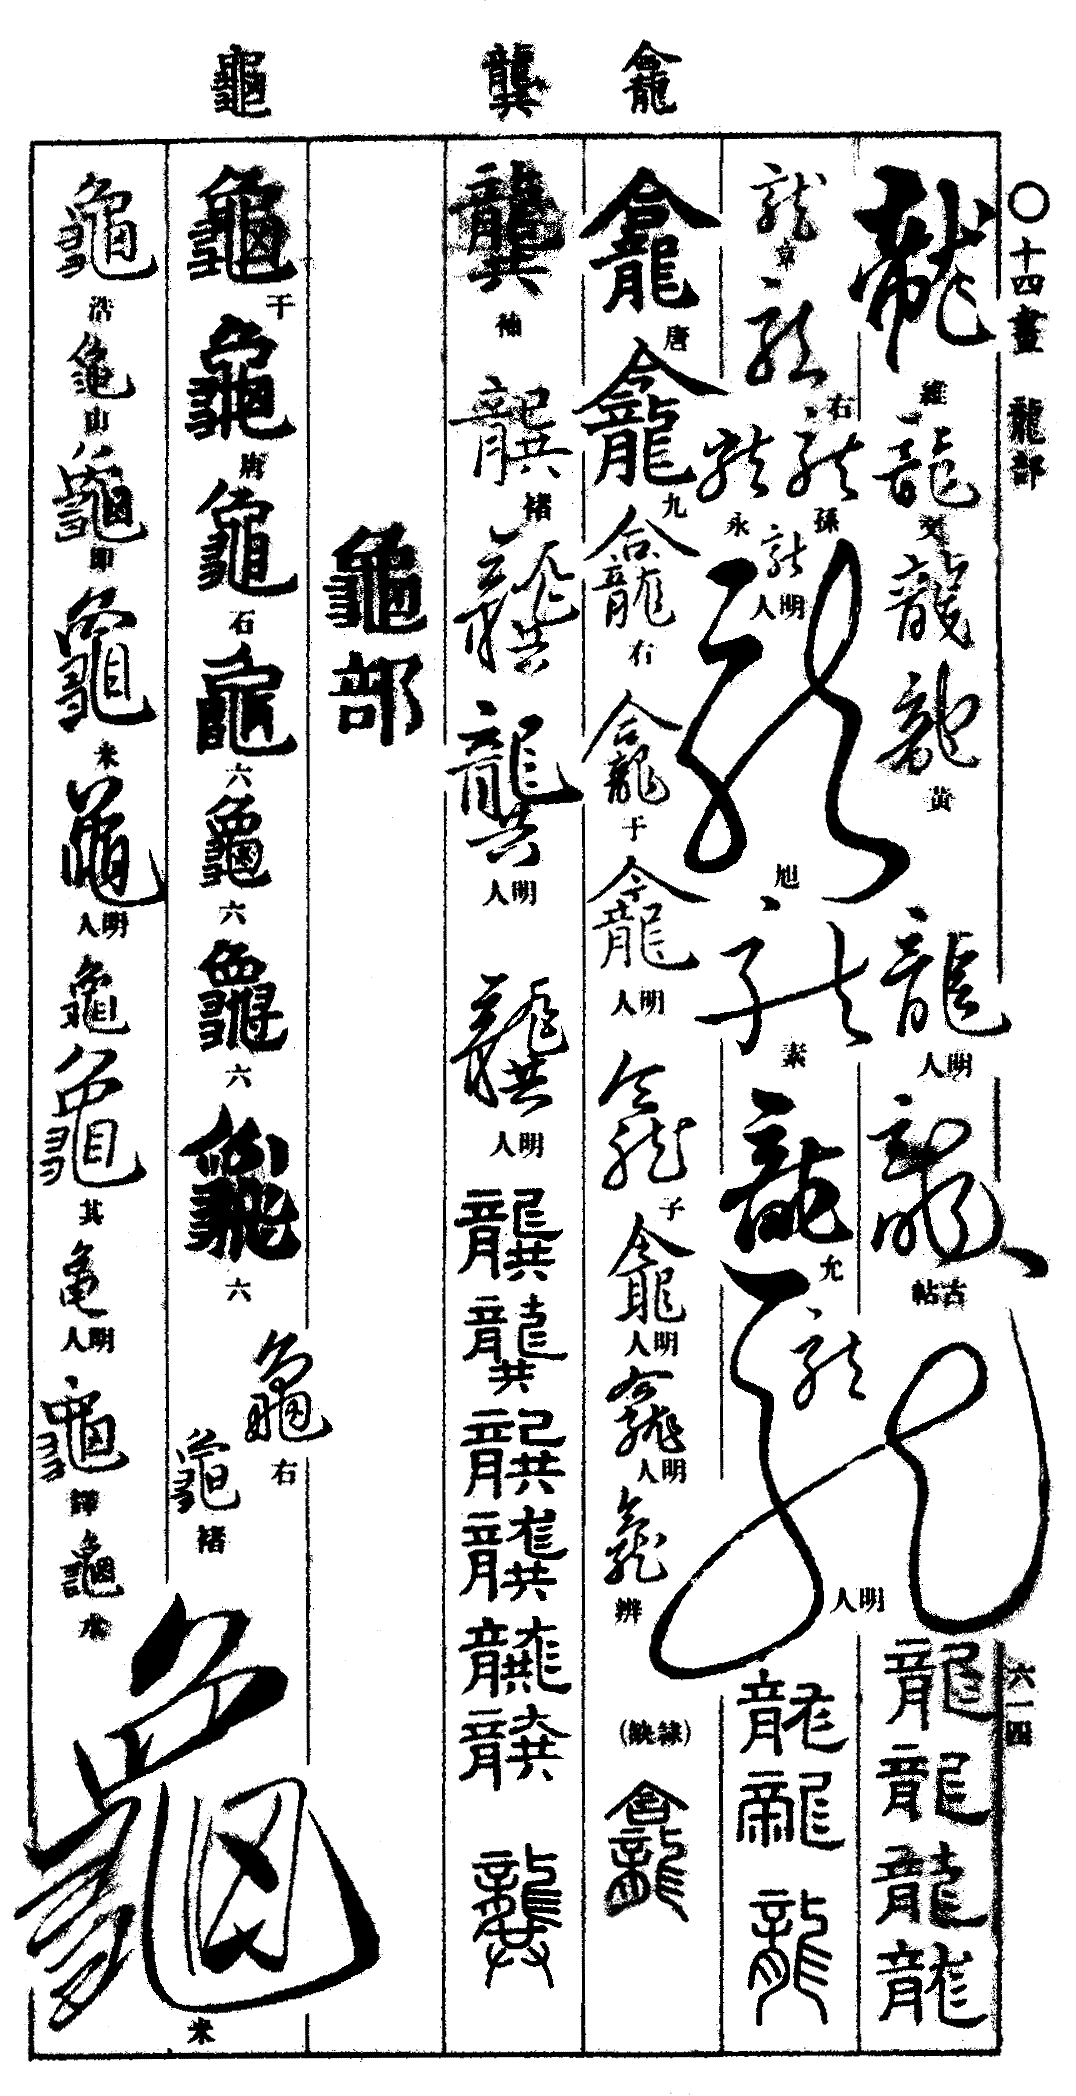 龕 龔 龜
○十四畫 龍部 六一四
龍 維 龍 龍 龍 黃 龍 明人 龍 古帖 龍 明人 龍 龍 龍 龍
龍 京 龍 右 龍 孫 龍 永 龍 明人 龍 旭 龍 素 龍 允 龍 龍 龍 龍 龍
龕 唐 龕 九 龕 右 龕 于 龕 明人 龕 子 龕 明人 龕 明人 龕 辨 (隸缺) 龕
龔 袖 龔 褚 龔 龔 明人 龔 明人 龔 龔 龔 龔 龔 龔 龔
龜部
龜 干 龜 唐 龜 石 龜 六 龜 六 龜 六 龜 六 龜 右 龜 褚
龜 浩 龜 山 龜 龜 米 龜 明人 龜 龜 其 龜 明人 龜 鐸 龜 龜 米